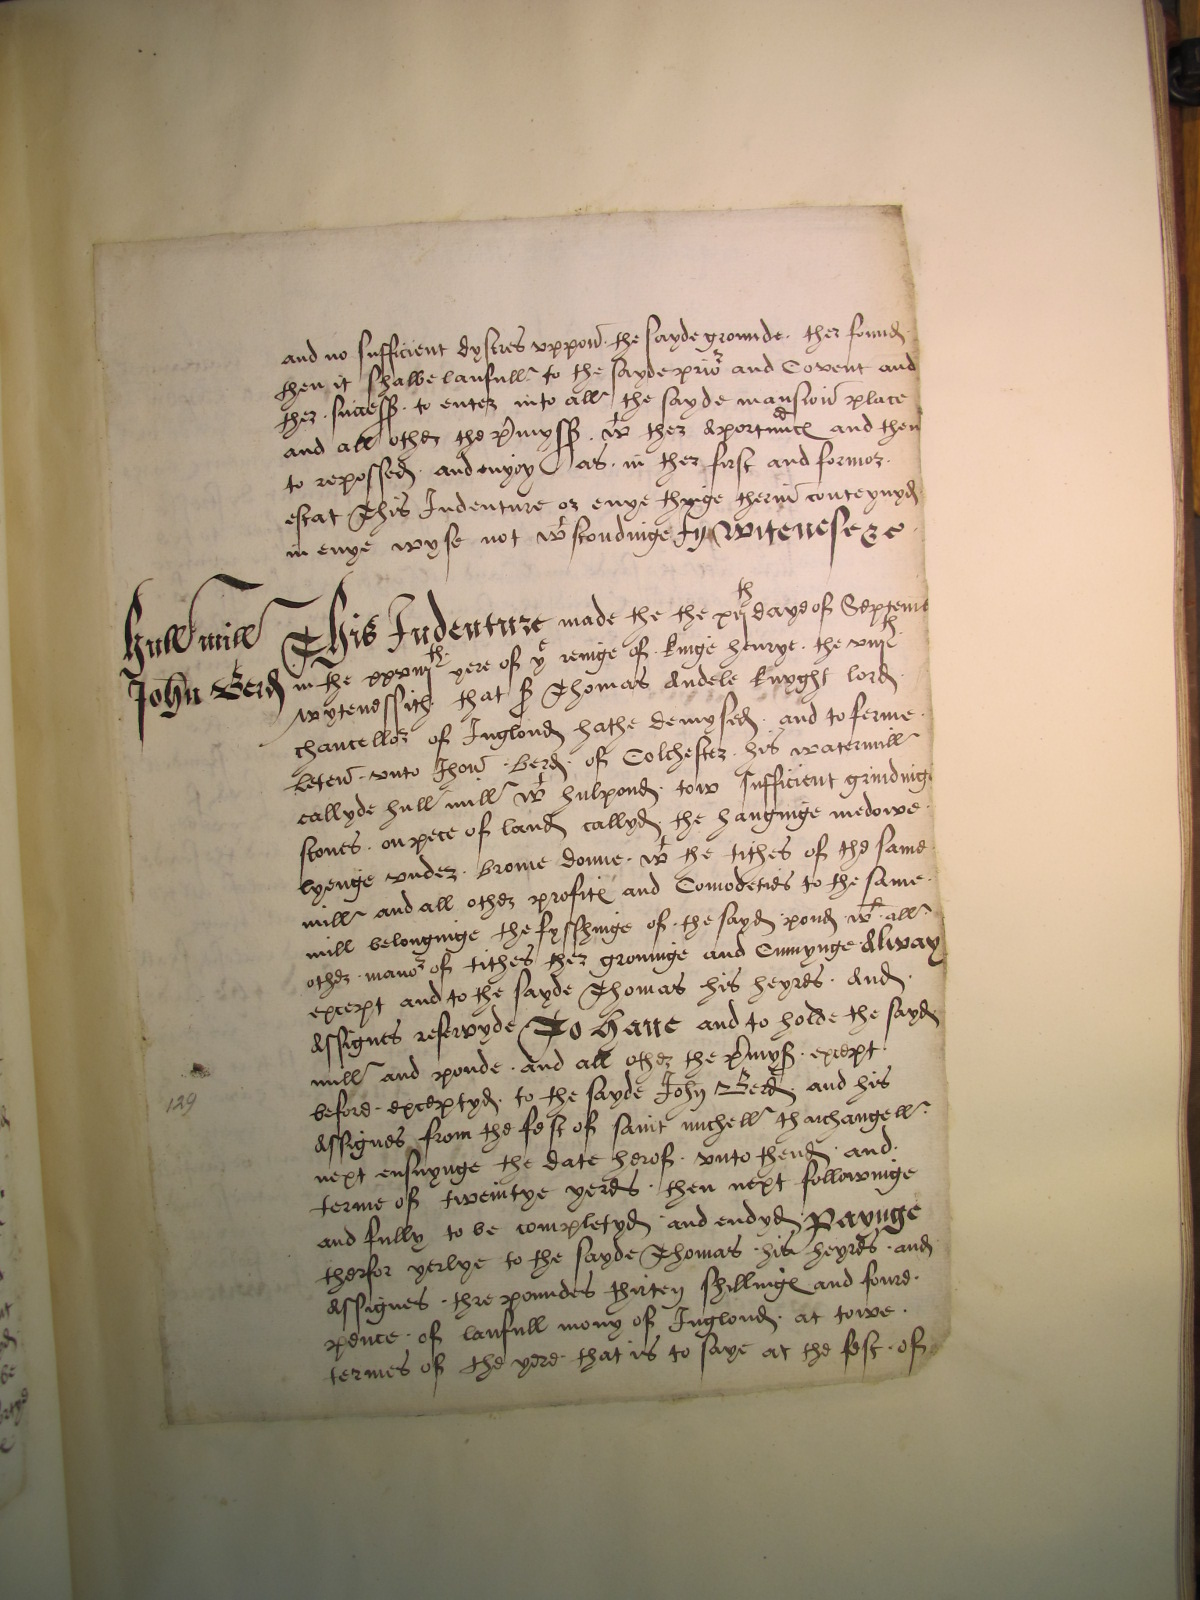 and no sufficient dystres uppon the sayde grounde ther found
then it shalbe laufull to the sayde prior and Covent and
ther success to enter into all the sayde mansion place
and all other the pmyss wt ther aportnnces and then
to reposseed and enyoy as in ther first and former
estat This Indenture or enye thynge therin conteynyd
in enye wyse not wtstondinge In Witenes
Hull mill
John Berd
This Indenture made the the xijth daye of Septem
in the xxviijth yere of ye reinge of kinge henrye the viijth
wytenessith that sr Thomas Audele knyght lord
chancellor of Inglond hathe demysed and to ferme
leten unto Jhon Berd of Colchester his watermill
callyde hull mill wt hulpond tow sufficient grinding
stones on pece of land callyd the hanginge medowe
lyenge under brome donne wt the tithes of the same
mill and all other profites and Comodeties to the same
mill belonginge the fysshinge of the sayd pond wt all
other maner of tithes ther growinge and Cumynge Alway
except and to the sayde Thomas his heyres And
Assignes reservyde To Haue and to holde the sayd
mill and ponde and all other the pmyss except
before exceptyd to the sayde John Berd and his
Assignes from the fest of saint michell tharchangell
next ensuynge the date herof unto thend and
terme of tweintye yeres then next followinge
and fully to be completyd and endyd Payinge
therfor yerlye to the sayde Thomas his heyres and
Assignes thre poundes thirten shillinges and foure
pence of laufull mony of Inglond at towe
termes of the yere that is to saye at the fest of
129